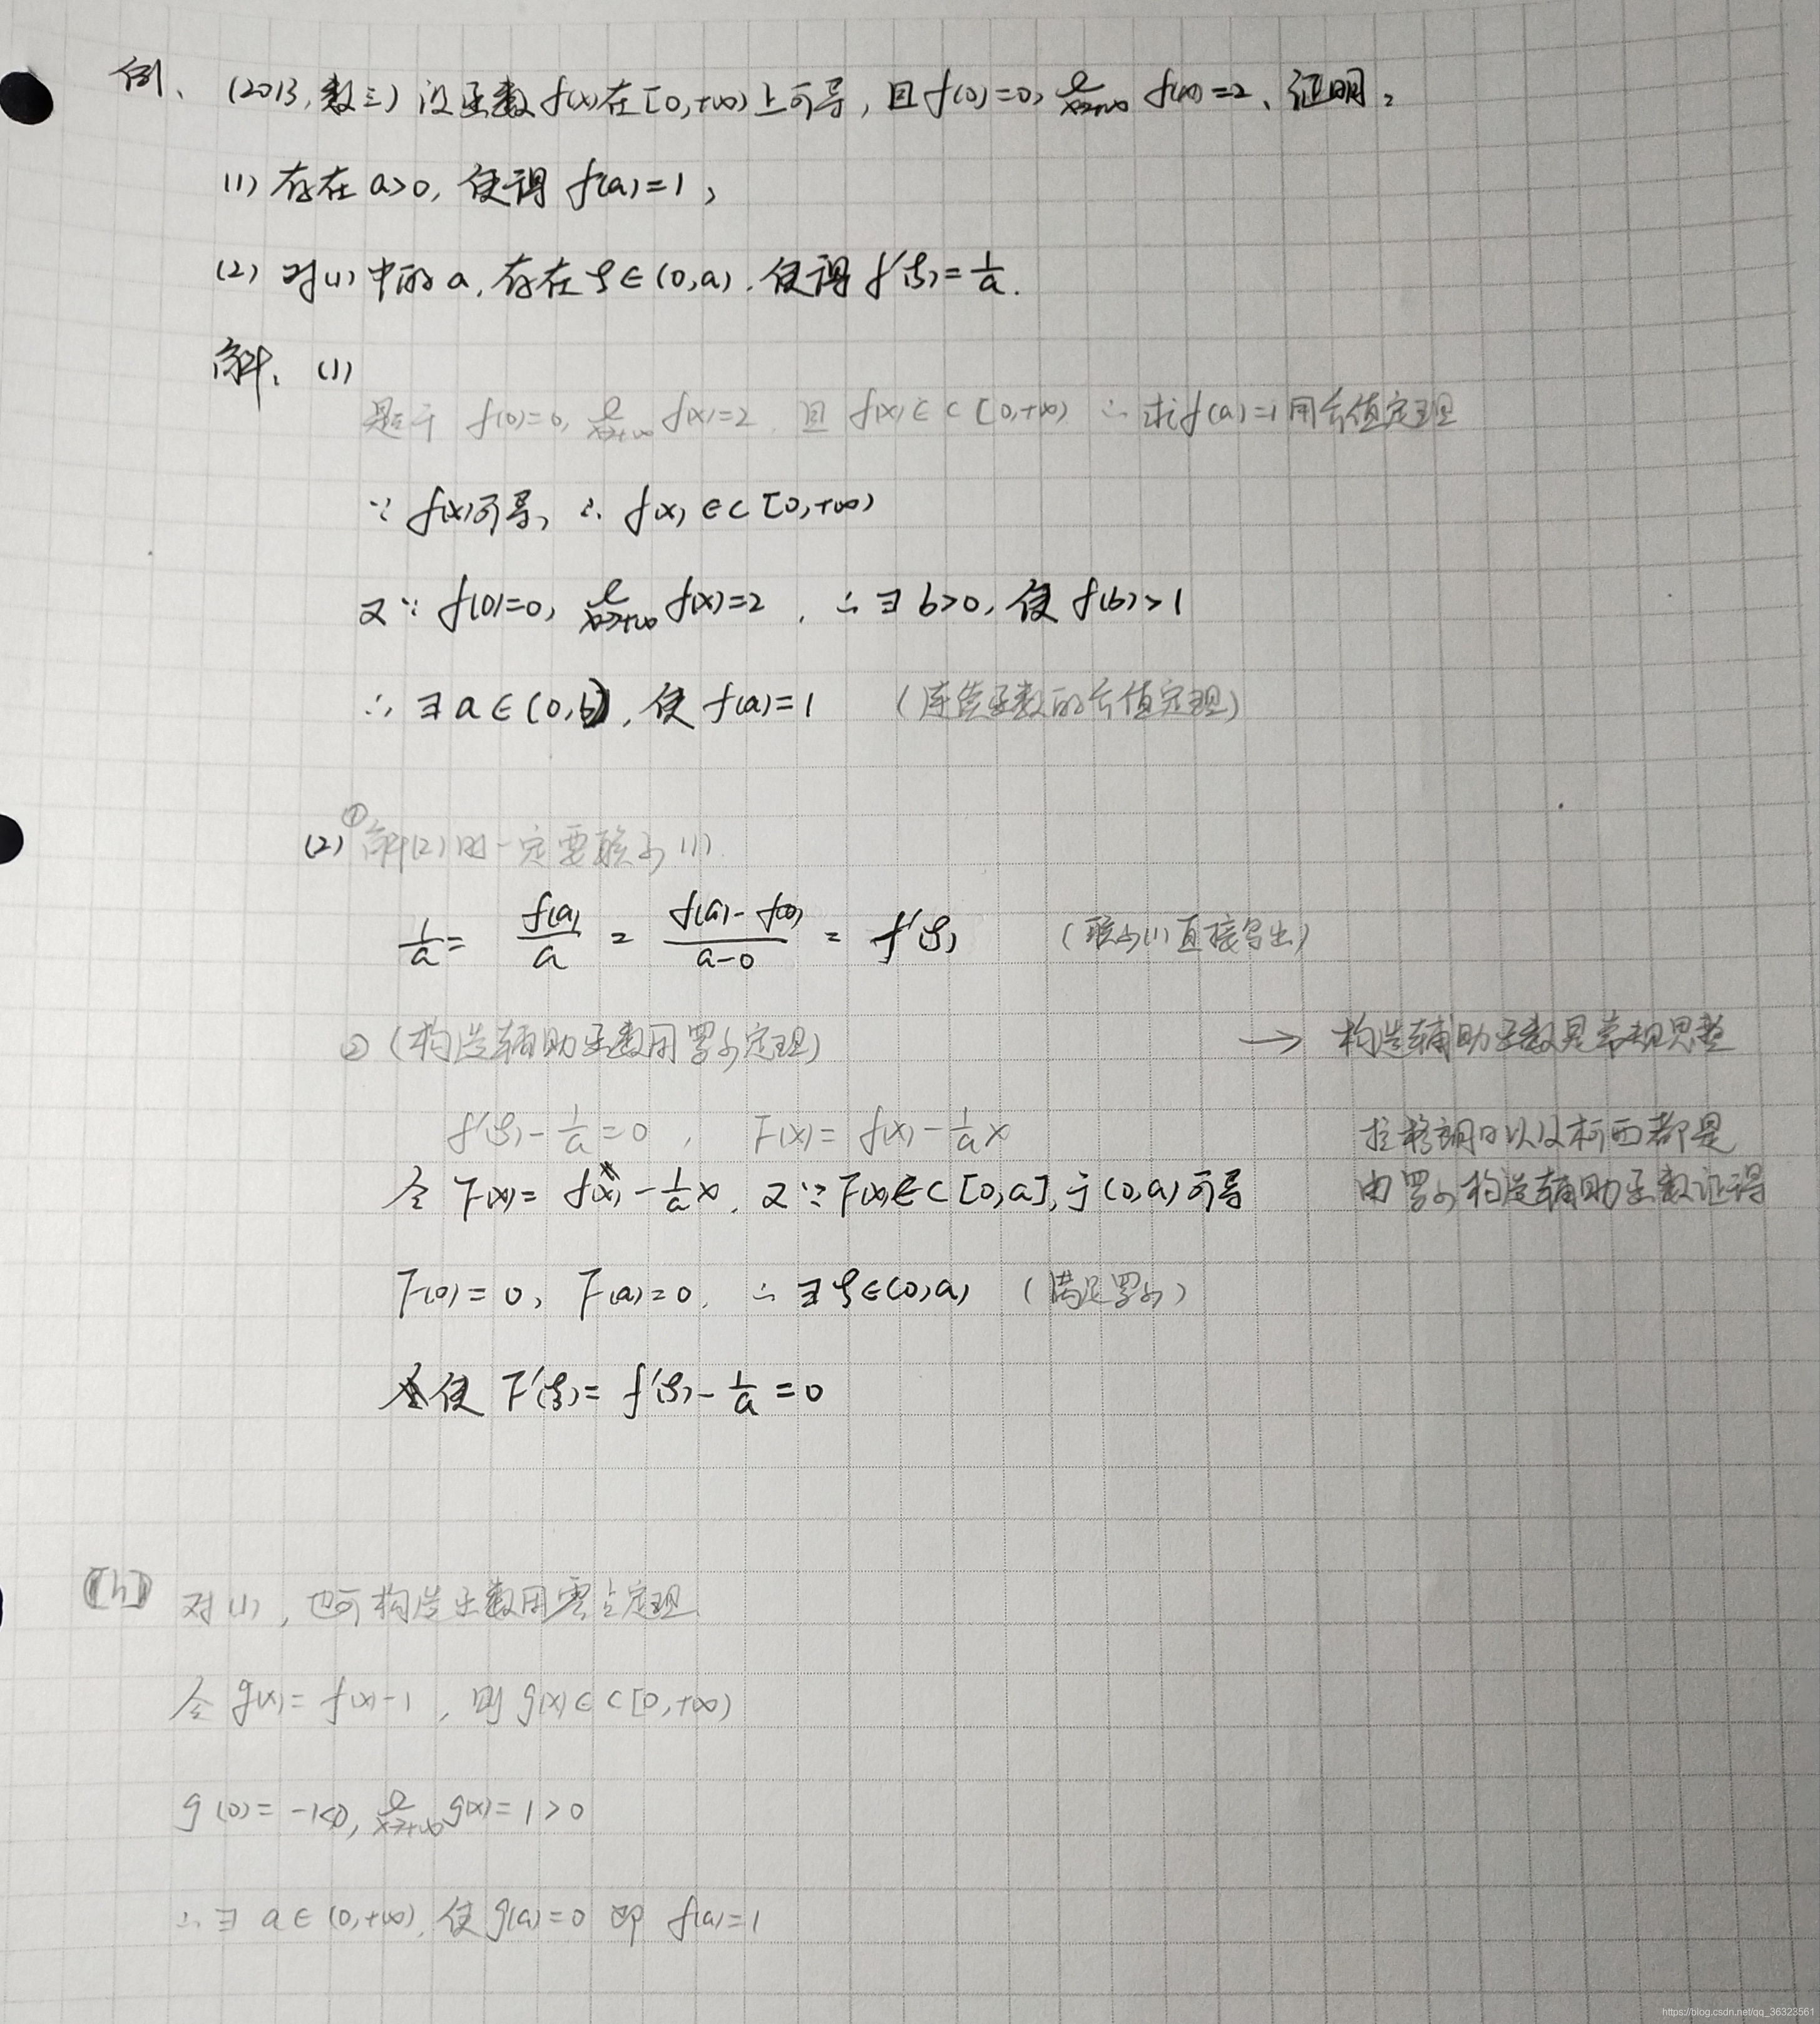 例、(2013,数三) 设函数f(x)在[0,+∞)上可导,且f(0)=0, lim x→+∞ f(x)=2、证明:
(1) 存在a>0, 使得 f(a)=1,
(2) 对(1)中的a,存在ξ∈(0,a).使得f'(ξ)=1/a.
解、(1)
f(0)=0, lim x→+∞ f(x)=2. 且 f(x)∈C[0,+∞) ∴求f(a)=1用介值定理
∵ f(x)可导, ∴ f(x)∈C[0,+∞)
又∵ f(0)=0, lim x→+∞ f(x)=2 , ∴∃b>0, 使 f(b)>1
∴ ∃a∈(0,b), 使 f(a)=1 (连续函数的介值定理)
(2) ①解(2)时一定要联系(1)
1/a = f(a)/a = (f(a)-f(0))/(a-0) = f'(ξ) (联系(1)直接写出)
② (构造辅助函数用罗尔定理) → 构造辅助函数是常规思想
f'(ξ)-1/a=0 , F(x)=f(x)-1/a x 拉格朗日以及柯西都是
令F(x)=f(x)-1/a x, 又∵F(x)∈C[0,a],于(0,a)可导 由罗尔构造辅助函数证得
F(0)=0, F(a)=0, ∴∃ξ∈(0,a) (满足罗尔)
使 F'(ξ)=f'(ξ)-1/a=0
对(1), 也可构造函数用零点定理
令 g(x)=f(x)-1 , 则g(x)∈C[0,+∞)
g(0)=-1<0, lim x→+∞ g(x)=1>0
∴∃ a∈(0,+∞), 使g(a)=0 即 f(a)=1
https://blog.csdn.net/qq_36323561